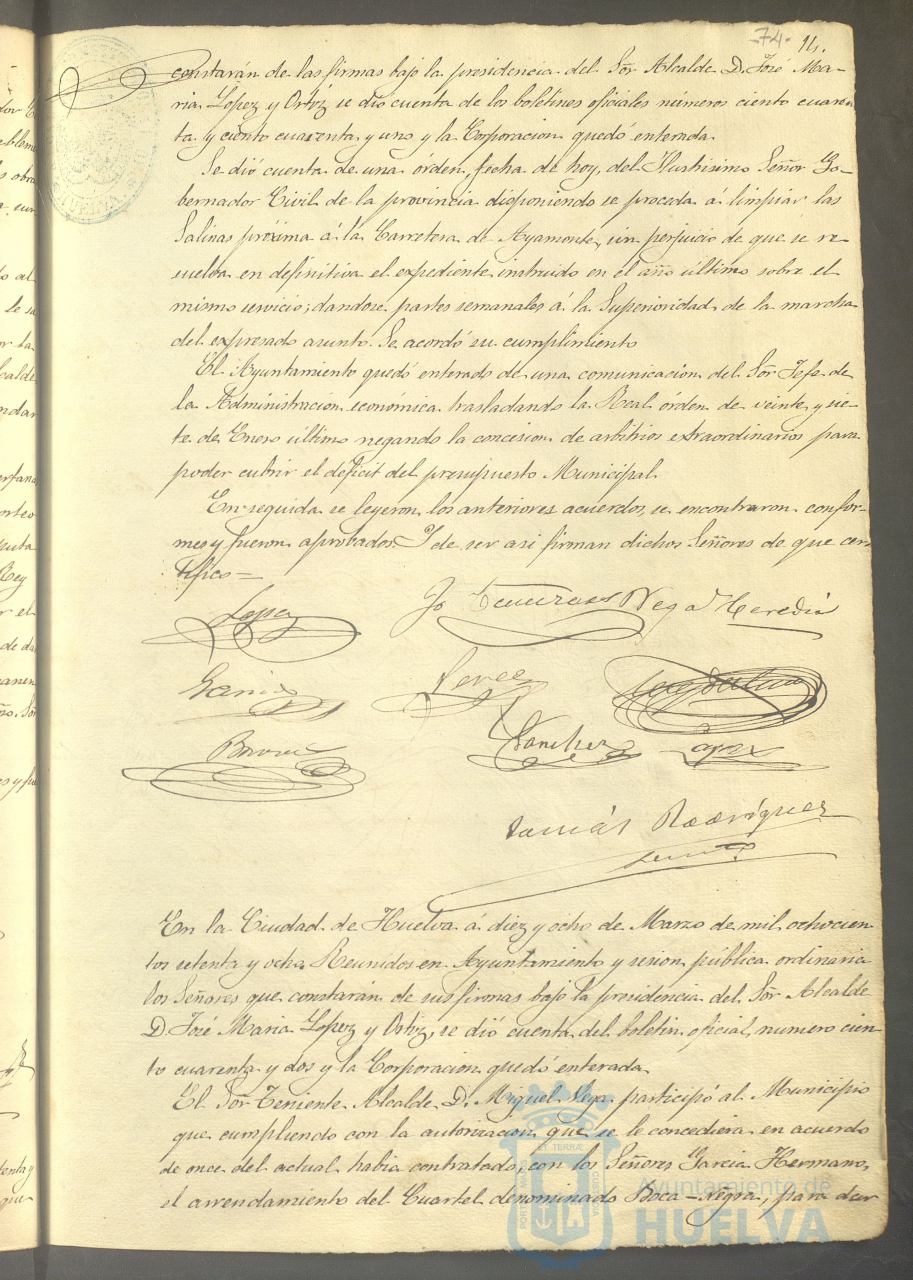 74. 14.
constarán de las firmas bajo la presidencia del Sor Alcalde D. José Ma-
ria Lopez y Ortiz se dio cuenta de los boletines oficiales números ciento cuaren
ta y ciento cuarenta y uno y la Corporacion quedó enterada.
Se dió cuenta de una órden, fecha de hoy, del Ilustrisimo Señor Go-
bernador Civil de la provincia disponiendo se proceda á limpiar las
Salinas próxima á la Carretera de Ayamonte, sin perjuicio de que se re
suelva en definitiva el expediente instruido en el año último sobre el
mismo servicio; dandose partes semanales á la Superioridad de la marcha
del expresado asunto. Se acordó su cumplimiento
El Ayuntamiento quedó enterado de una comunicacion del Sor Jefe de
la Administracion económica trasladando la Real órden de veinte y sie-
te de Enero último negando la concesion de arbitrios extraordinarios para
poder cubrir el déficit del presupuesto Municipal.
En seguida se leyeron los anteriores acuerdos, se encontraron confor-
mes y fueron aprobados. Y de ser asi firman dichos Señores de que cer
tifico=
Lopez Vega Heredia
Garcia Perez
Sanchez Lopez
Tomás Rodriguez
En la Ciudad de Huelva á diez y ocho de Marzo de mil ochocien
tos setenta y ocho. Reunidos en Ayuntamiento y sesion pública ordinaria
los Señores que constarán de sus firmas bajo la presidencia del Sor Alcalde
D. José Maria Lopez y Ortiz, se dió cuenta del boletin oficial numero cien
to cuarenta y dos y la Corporacion quedó enterada.
El Sor Teniente Alcalde D. Miguel Vega participó al Municipio
que cumpliendo con la autorizacion que se le concediera en acuerdo
de once del actual habia contratado con los Señores Garcia Hermano,
el arrendamiento del Cuartel denominado Boca-Negra, para dar
Ayuntamiento de
HUELVA